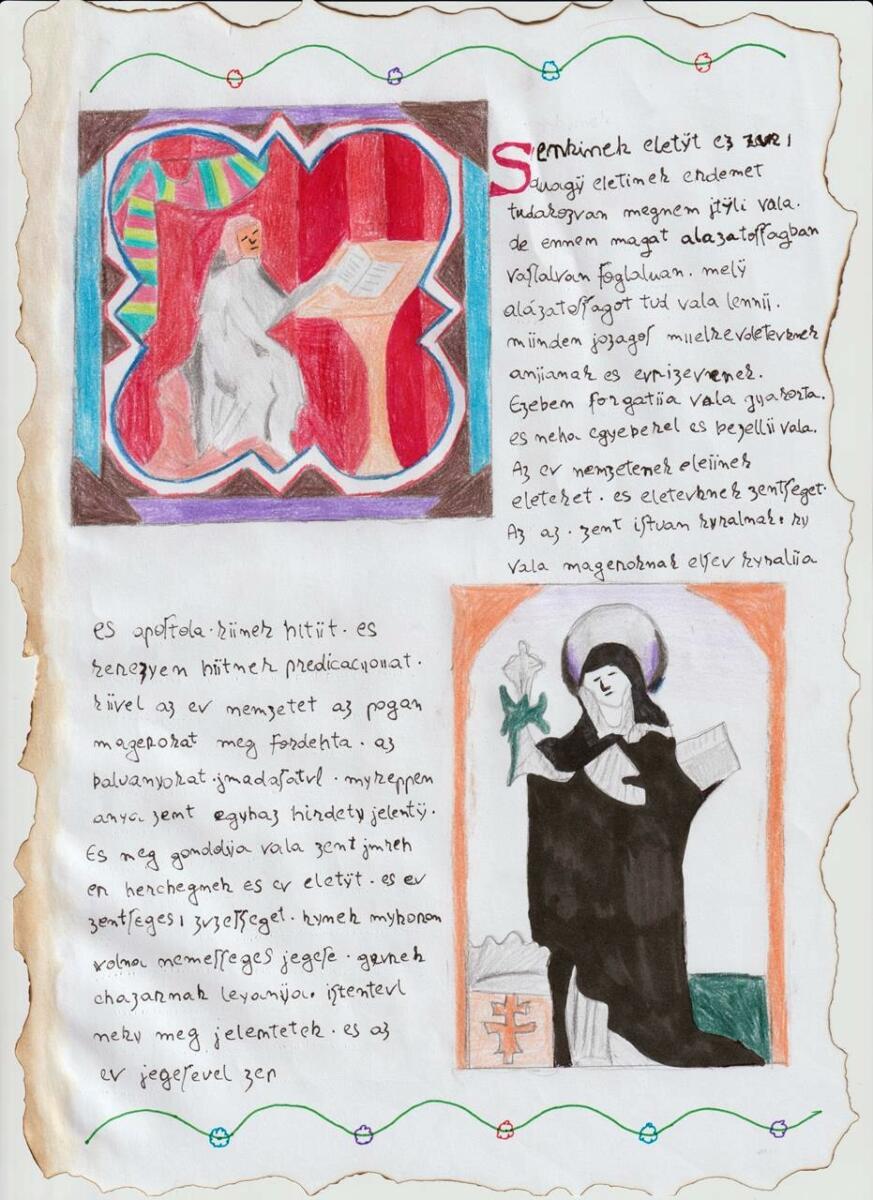 Senkinek eletÿt ez zuz i
auagÿ eletinek erdemet
tudakozvan megnem jtÿli vala.
de ennem magat alazatoſſagban
vaſlalvan foglaluan. melÿ
alázatoſſagot tud vala lennij.
miinden jozagoſ miielkevdetevknek
anjianak es evrizevenek.
Ezebem forgatiia vala gyakorta.
es neha egyebekel es bezellii vala.
Az ev nemzetenek eleiinek
eleteket. es eletevknek zentſeget.
Az az. zent iſtuan kyralnak. ky
vala mageroknak elſev kyraliia
es apoſtola. kiinek hitiit. es
kerezyen hiitnek predicacyonat.
kiivel az ev nemzetet az pogan
magerokat meg fordehta. az
balvanyokat. jmadaſatvl. mykeppen
anya zent egyhaz hirdety jelentÿ.
Es meg gondolya vala zent jmreh
er herchegnek es ev eletÿt. es ev
zentſeges i zvzeſſeget. kynek mykoron
volna nemeſſeges jegeſe. gevrek
chazarnak leyanija. iſtentevl
neky meg jelemtetek. es az
ev jegeſevel zep